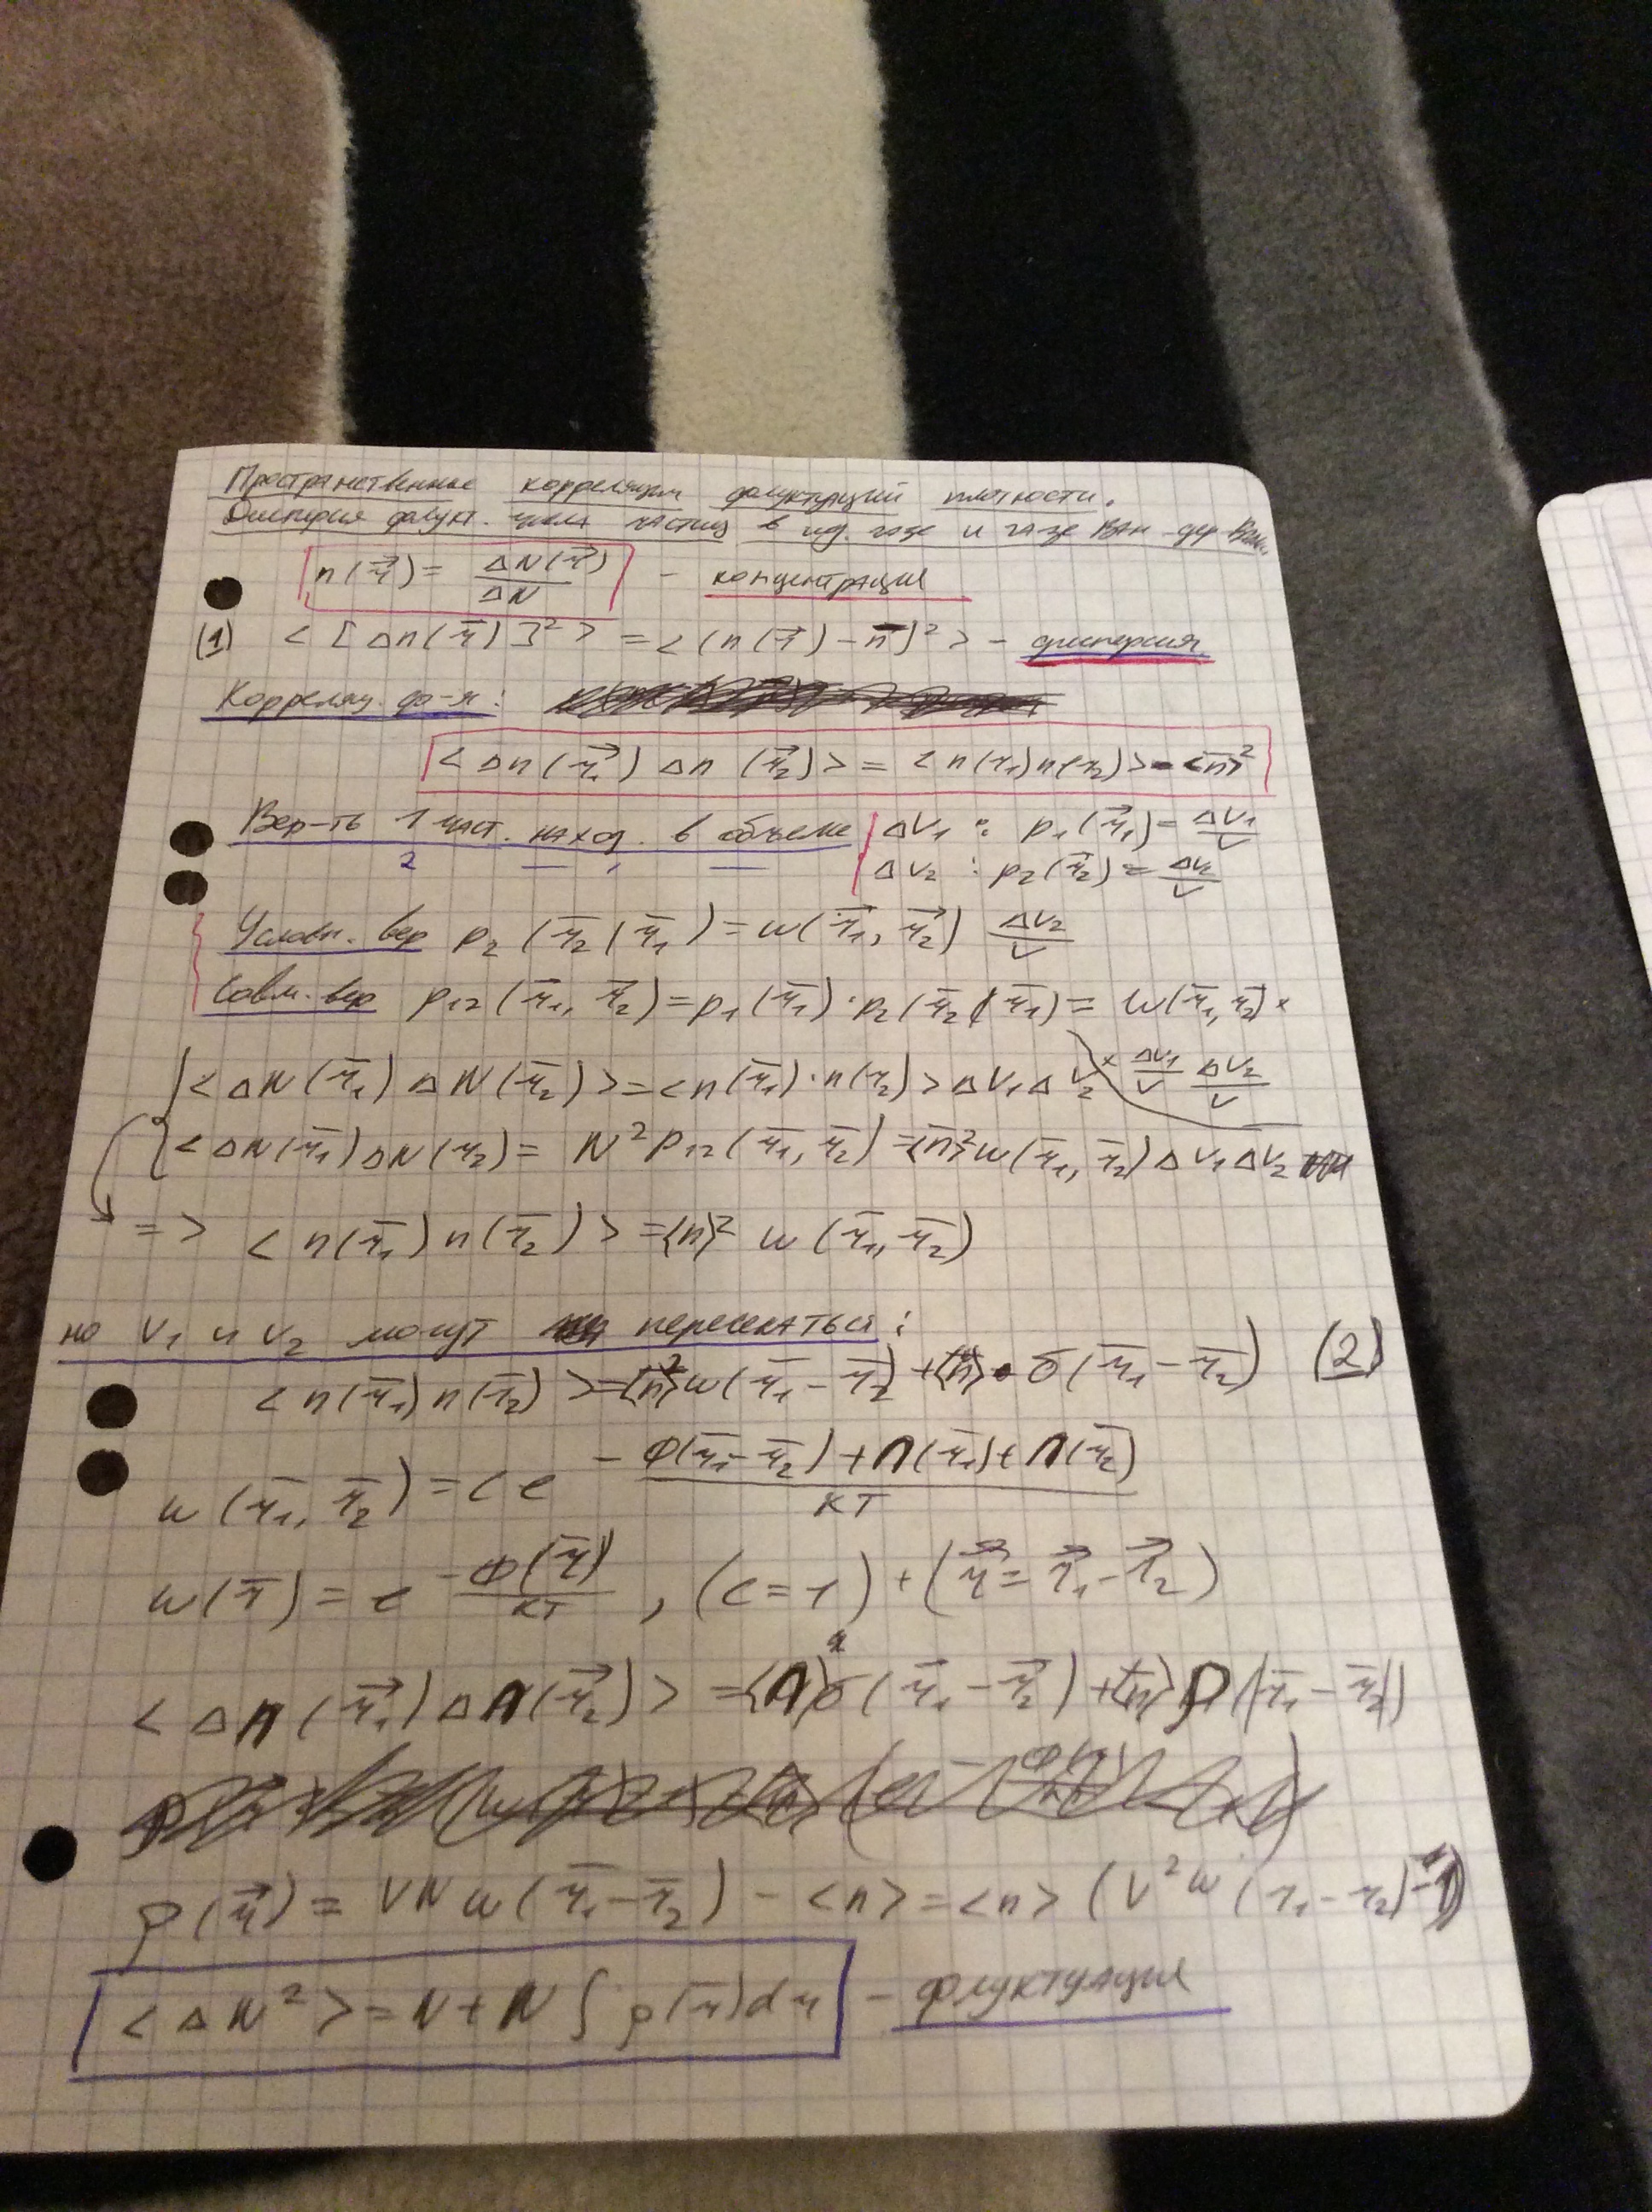 Пространственные корреляции флуктуаций плотности.
Дисперсия флукт. числа частиц в ид. газе и газе Ван-дер-
n(r⃗) = ΔN(r⃗)/ΔN - концентрация
(1) < [Δn(r̄)]² > = <(n(r⃗) - n̄)²> - дисперсия
Корреляц. ф-я:
<Δn(r⃗₁) Δn(r⃗₂)> = <n(r₁)n(r₂)> - <n̄>²
Вер-ть 1 част. наход. в объеме | ΔV₁ : p₁(r⃗₁) = ΔV₁/V
2 — , — ΔV₂ : p₂(r⃗₂) = ΔV₂/V
Условн. вер p₂(r̄₂|r̄₁) = w(r⃗₁, r⃗₂) ΔV₂/V
Совм. вер p₁₂(r̄₁, r̄₂) = p₁(r̄₁)·p₂(r̄₂|r̄₁) = w(r̄₁, r̄₂) ×
× ΔV₁/V ΔV₂/V
<ΔN(r̄₁) ΔN(r̄₂)> = <n(r̄₁)·n(r₂)> ΔV₁ΔV₂
<ΔN(r̄₁)ΔN(r₂) = N² p₁₂(r̄₁, r̄₂) = <n̄>² w(r̄₁, r̄₂) ΔV₁ΔV₂
=> <n(r̄₁)n(r̄₂)> = <n>² w(r̄₁, r̄₂)
но V₁ и V₂ могут пересекаться:
<n(r̄₁)n(r̄₂)> = <n>² w(r̄₁ - r̄₂) + <n>·δ(r̄₁ - r̄₂) (2)
w(r̄₁, r̄₂) = C e^(-(Φ(r̄₁ - r̄₂) + П(r̄₁) + П(r̄₂))/кТ)
w(r̄) = e^(-Φ(r̄)/кТ), (c = 1) + (r⃗ = r⃗₁ - r⃗₂)
<Δn(r⃗₁)Δn(r⃗₂)> = <n>δ(r̄₁ - r̄₂) + <n>ρ(r̄₁ - r̄₂)
ρ(r⃗) = VNw(r̄₁ - r̄₂) - <n> = <n> (V²w(r₁ - r₂) - 1)
<ΔN²> = N + N ∫ ρ(r̄)dr - флуктуация